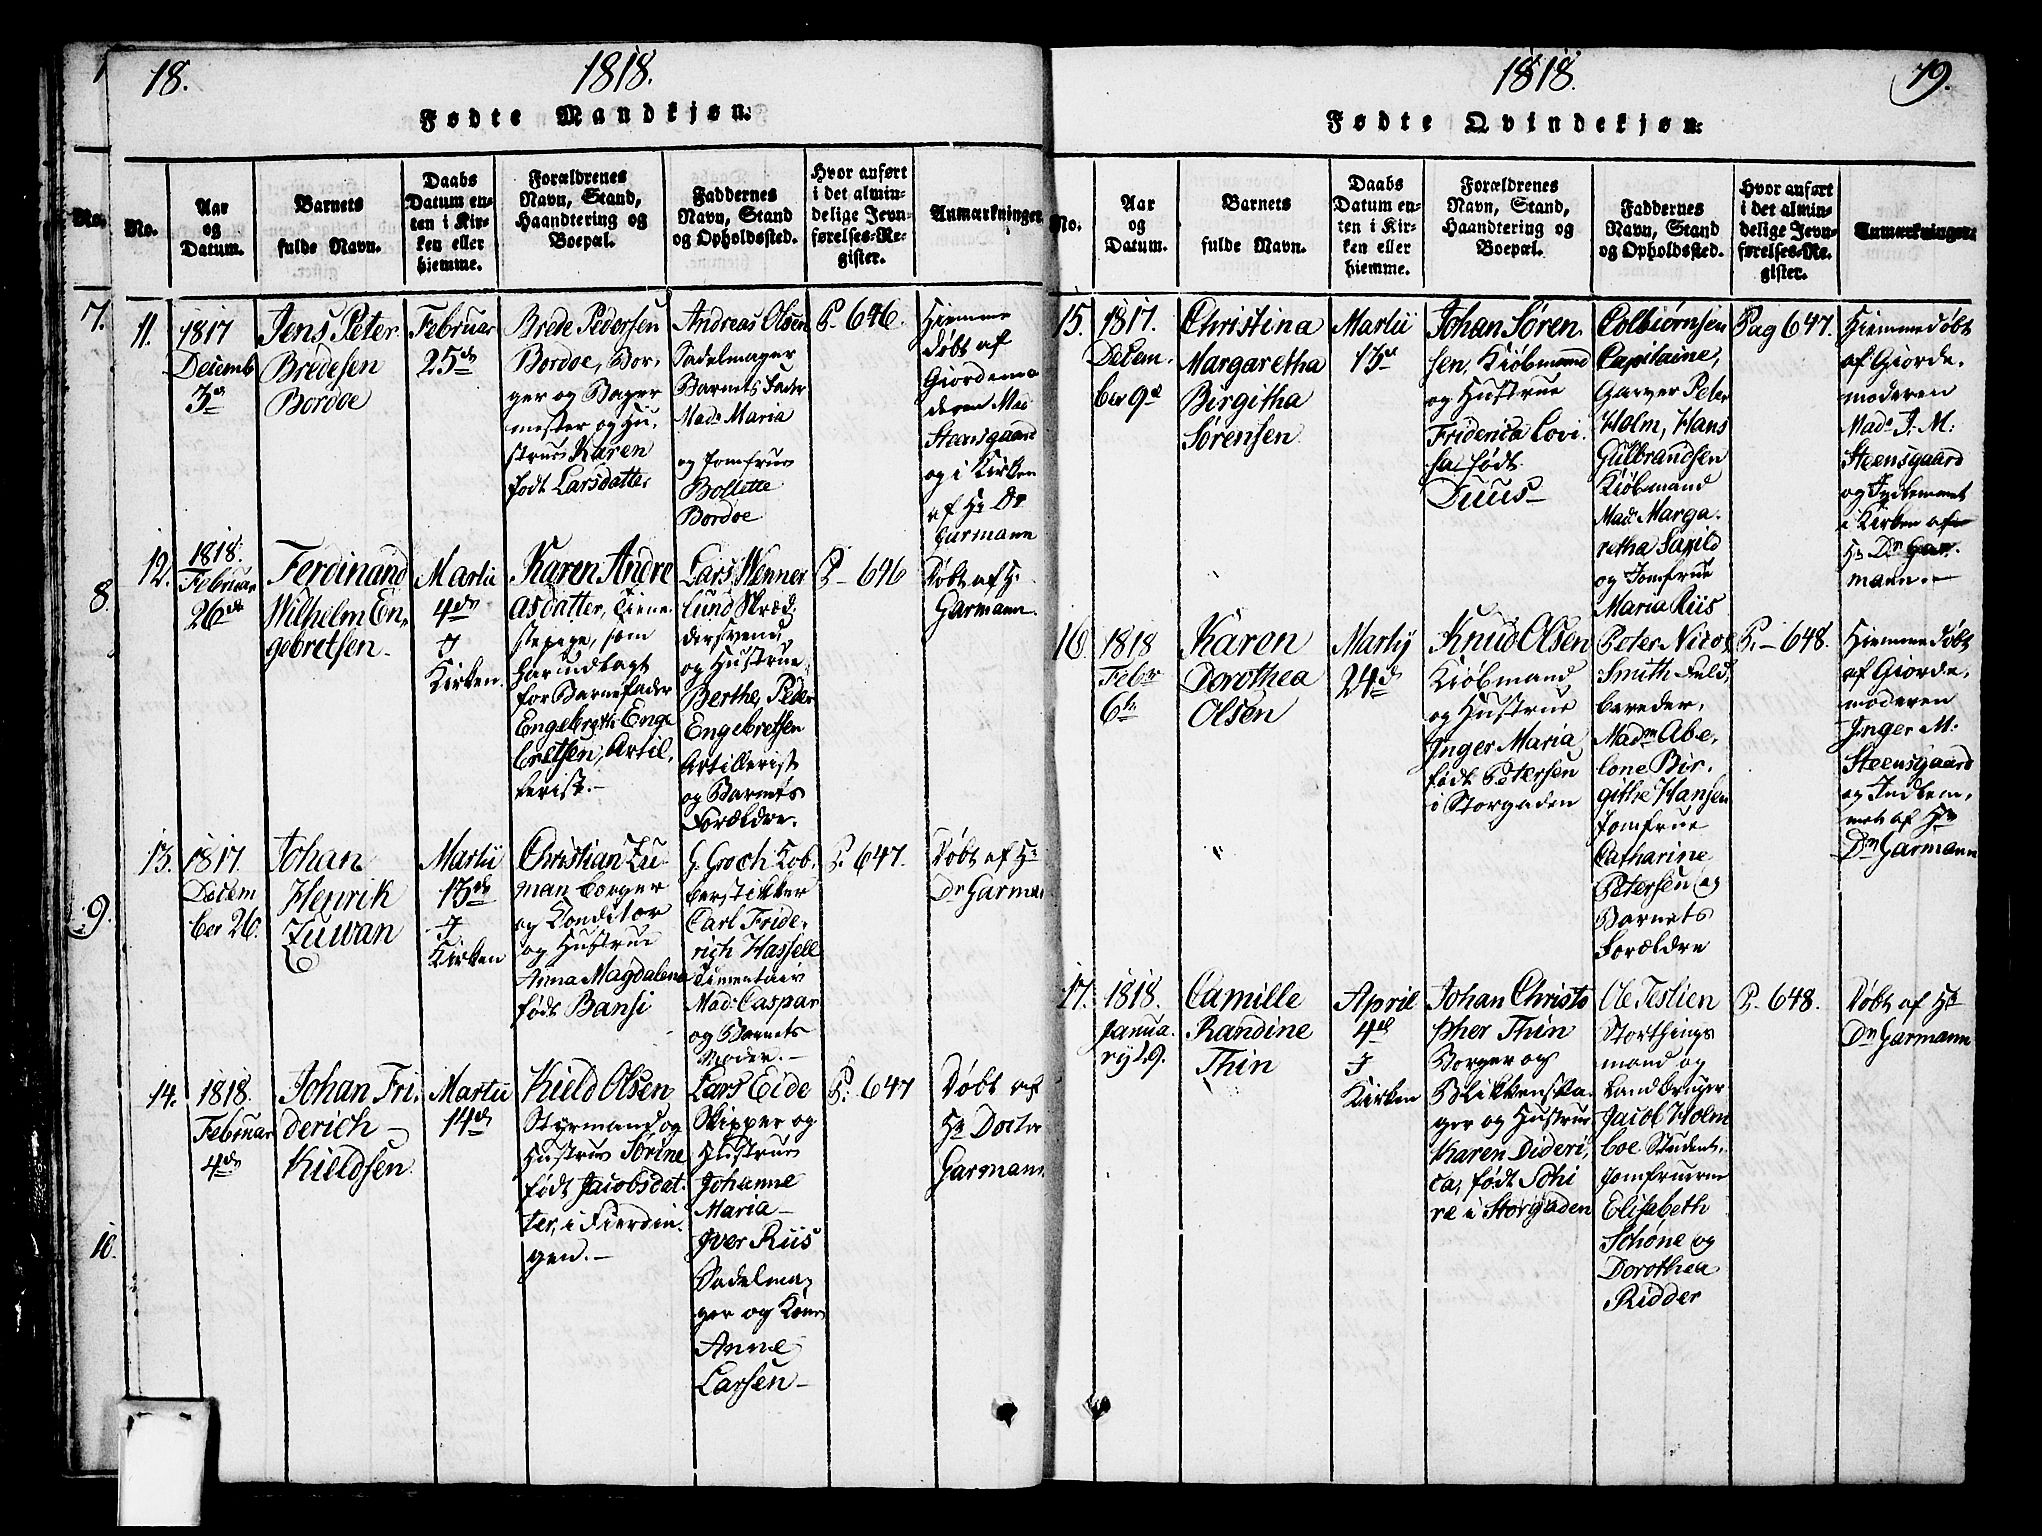 18.
1818.
Fødte Mandkjøn.
No.
Aar
og
Datum.
Barnets
fulde Navn.
Daabs
Datum en-
ten i Kir-
ken eller
hjemme.
Forældrenes
Navn, Stand,
Haandtering og
Boepæl.
Faddernes
Navn, Stand
og Opholdssted.
Hvor anført
i det almin-
delige Jevn-
førelses-Re-
gister.
Anmærkninger.
No.
7.
8
9.
10.
11.
1817
Decemb
3de
Jens Peter
Bredesen
Bordoe
Februar
25de
Brede Pedersen
Bordoe, Bor,
ger og Bager
mester og Hu,
strue Karen
født Larsdatter
Andreas Olsen
Sadelmager
Barnets Fader
Mad. Maria
og Jomfrue
Bollette
Bordoe
P. 646.
Hiemme
døbt af
Giordemo
deren Mad
Steensgaard
og i Kirken
af Hr Dr
Garmann
12.
1818.
Februar
26de
Ferdinand
Wilhelm En,
gebretsen
Martii
4de
J
Kirken.
Karen Andre
asdatter, Tiene
stepige, som
har udlagt
for Barnefader
Engebreth Enge
bretsen, Artil,
lerist.
Lars Wenner
lund Skræd,
dersvend,
og Hustrue
Berthe, Peder
Engebretsen
Artillerist
og Barnets
Forældre.
P - 646
Døbt af Hr
Garmann.
13.
1817.
Decem
ber 26.
Johan
Henrik
Zuwan
Martii
13de
J
Kirken
Christian Zu
man borger
og Conditor
og Hustrue
Anna Magdalena
født Bansi
G. Groch Kob,
berstikker
Carl Fride,
rich Hassell
Mad. Caspar
og Barnets
Moder.
P. 647.
Døbt af Hr
Dr Garman
14.
1818.
Februar
4de
Johan Fri
derich
Kieldsen
Martii
14de
Kield Olsen
Styrmand og
Hustrue Sørine
født Jacobsdat
ter, i Fierdin
gen.
Lars Eide
Skipper og
Hustrue
Johanne
Maria
Iver Riis
Sadelma,
ger og Kone
Anne
Larsen
P. 647
Døbt af
Hr Doctor
Garmann.
1818.
19.
Fødte Qvindekjøn.
No.
Aar
og
Datum.
Barnets
fulde Navn.
Daabs
Datum en-
ten i Kir-
ken eller
hiemme.
Forældrenes
Navn, Stand,
Haandtering og
Boepæl.
Faddernes
Navn, Stand
og Opholdssted.
Hvor anført
i det almin-
delige Jevn-
førelses-Re-
gister.
Anmærkninger.
15.
1817.
Decem.
ber 9de
Christina
Margaretha
Birgitha
Sørensen
Martii
13de
Johan Søren,
sen, Kiøbmand
og Hustrue
Friderica Lovi
sa født
Duus
Colbiørnsen
Capitaine,
Garver Peter
Holm, Hans
Gulbrandsen
Kiøbmand
Mad. Marga
retha Saxild
og Jomfrue
Maria Riis
Pag 647.
Hiemmedøbt
af Giorde,
moderen
Mad. J. M.
Steensgaard
og Indlemmet
i Kirken af
Hr Dr Gar
mann.
16.
1818
Febr
6te
Karen
Dorothea
Olsen
Martij
24de
Knud Olsen
Kiøbmand
og Hustrue
Inger Maria,
født Petersen
i Storgaden
Peter Nicol,
Smith Feld,
bereder,
Madm Abe,
lone Bir,
githe Hansen
Jomfrue
Catharine
Petersen og
Barnets
Forældre
P. - 648.
Hiemmedøbt
af Giorde,
moderen
Inger M.
Steensgaard
og Indlem,
met af Hr
Dr Garmann
17.
1818.
Janua
rij 29.
Camille
Randine
Thin
April
4de
J
Kirken
Johan Christo
pher Thin
Borger og
Blikkenslæ
ger og Hustrue
Karen Dideri,
ca, født Schi
re i Storgaden
Ole Testien
Storthings
mand og
Landbruger
Jacob Holm
boe Student,
Jomfruerne
Elisabeth
Schøne og
Dorothea
Ridder
P. 648.
Døbt af Hr
Dr Garmann